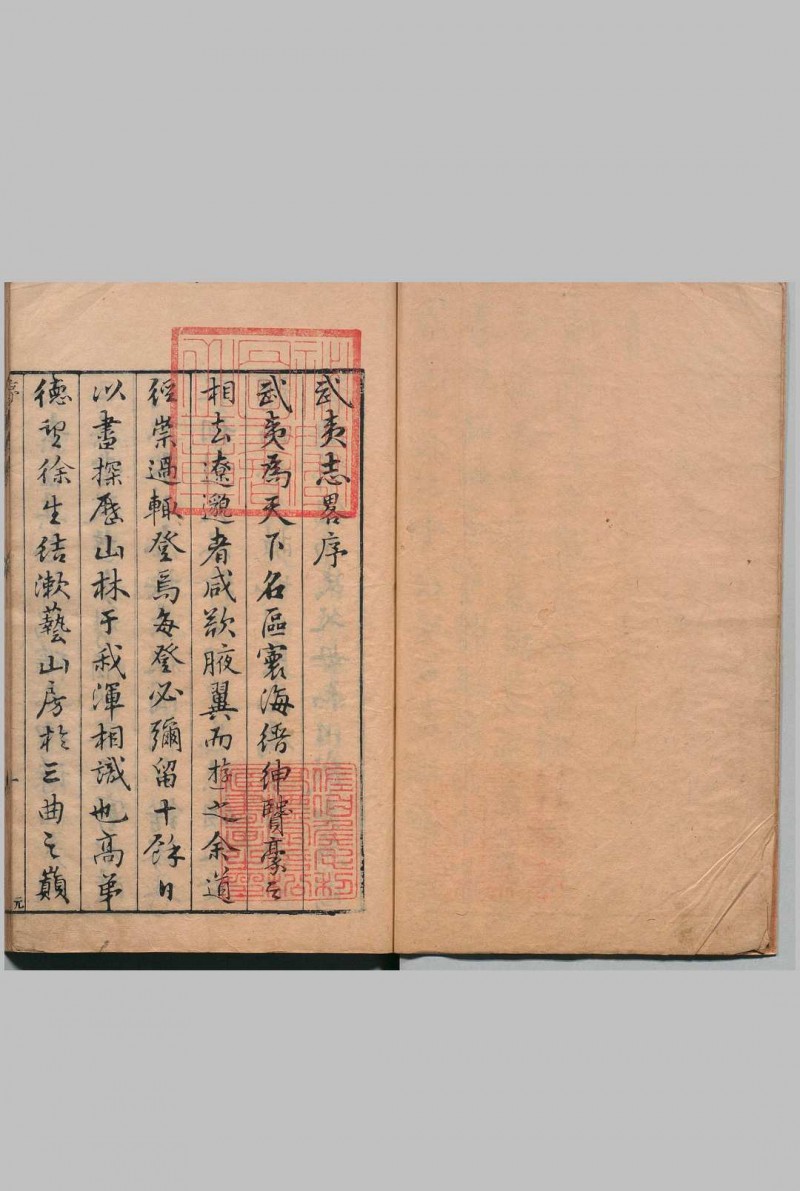 武夷志畧序
武夷為天下名區寰海縉紳賢豪之
相去遼邈者咸欲腋翼而遊之余道
經崇過輙登焉每登必彌留十餘日
以盡探歷山林于我渾相識也高弟
德望徐生結漱藝山房於三曲之巔
序
一
元